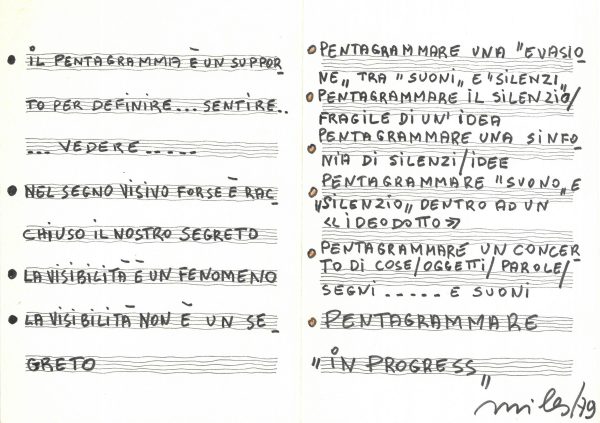 • IL PENTAGRAMMIA È UN SUPPOR_
TO PER DEFINIRE... SENTIRE..
... VEDERE.....
• NEL SEGNO VISIVO FORSE È RAC_
CHIUSO IL NOSTRO SEGRETO
• LA VISIBILITÀ È UN FENOMENO
• LA VISIBILITÀ NON È UN SE_
GRETO
• PENTAGRAMMARE UNA "EVASIO_
NE" TRA "SUONI" E "SILENZI"
• PENTAGRAMMARE IL SILENZIO/
FRAGILE DI UN'IDEA
• PENTAGRAMMARE UNA SINFO_
NIA DI SILENZI/IDEE
• PENTAGRAMMARE "SUONO" E
"SILENZIO" DENTRO AD UN
«LIDEODOTTO»
• PENTAGRAMMARE UN CONCER_
TO DI COSE/OGGETTI/PAROLE/
SEGNI ..... E SUONI
• PENTAGRAMMARE
"IN PROGRESS"
miles/79